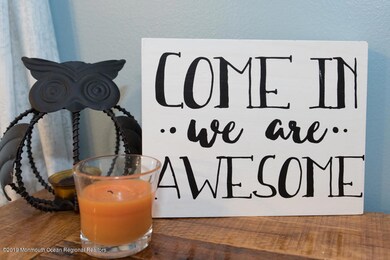 COME IN
..we are..
AWESOME
©2019 Monmouth Ocean Regional Realtors